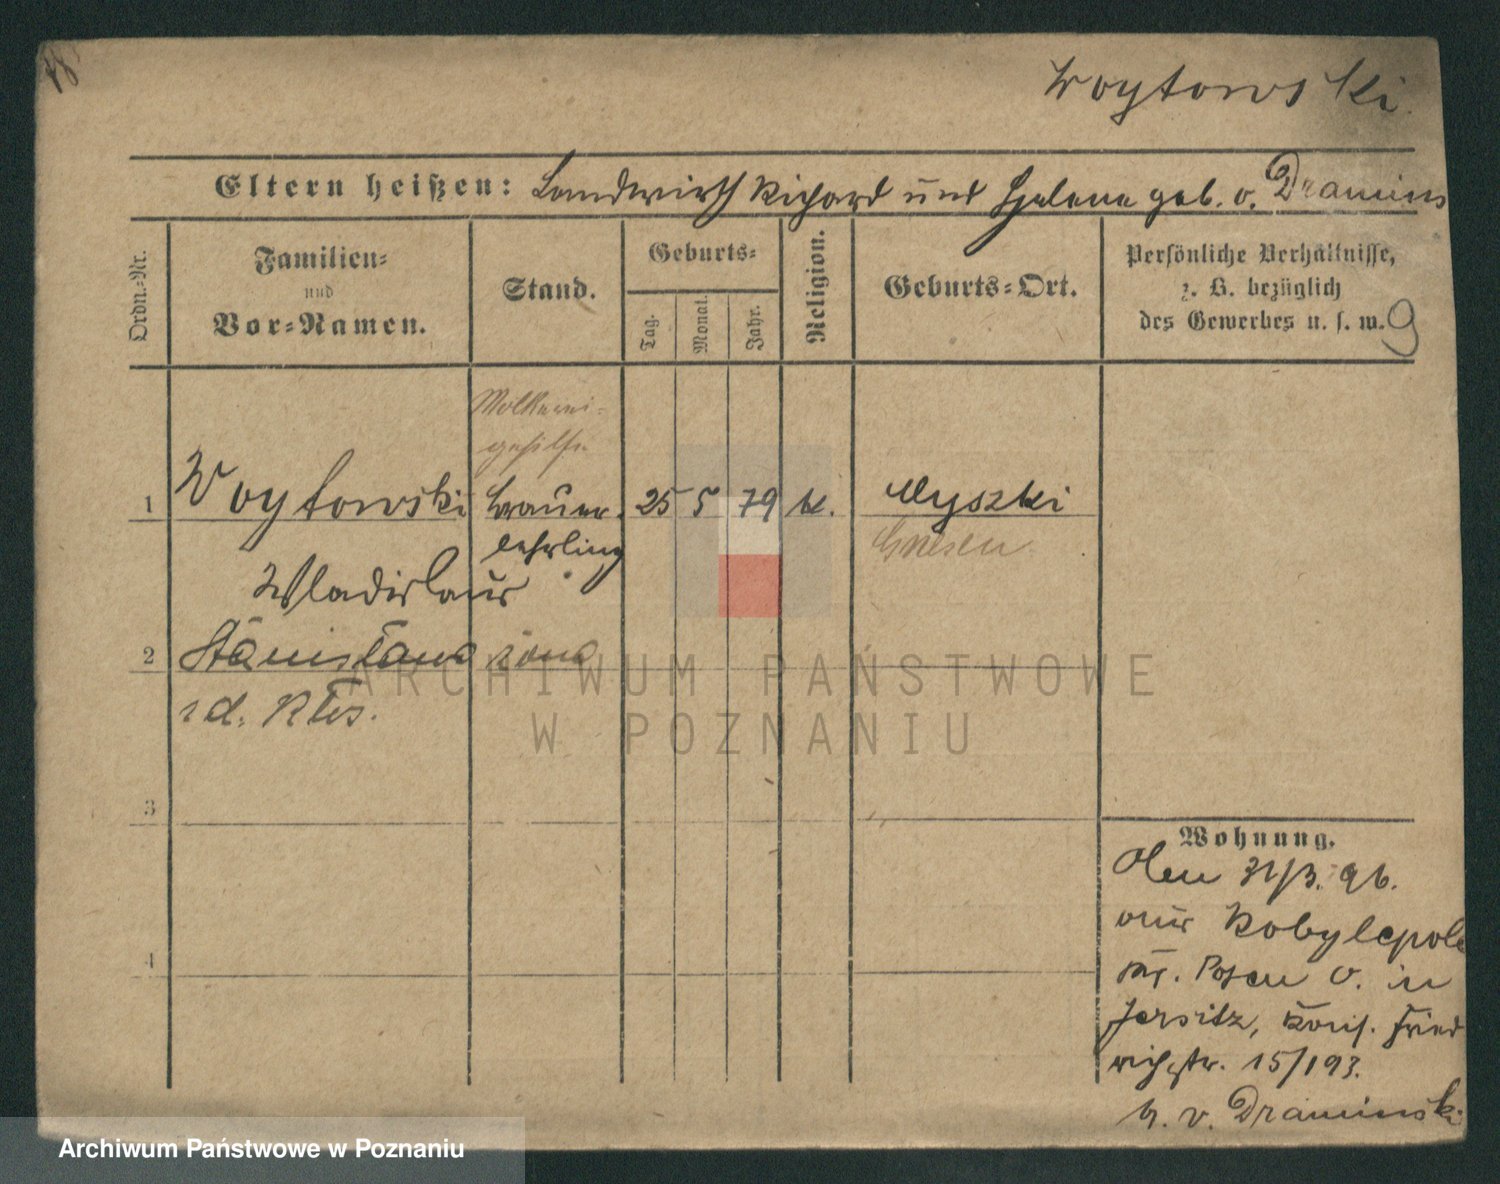 Woytowski
Eltern heißen: Landwirth Richard und Helene geb. v. Dramins
Ordn.-Nr.
Familien-
und
Vor-Namen.
Stand.
Geburts-
Tag.
Monat.
Jahr.
Religion.
Geburts-Ort.
Persönliche Verhältnisse,
z. B. bezüglich
des Gewerbes u. s. w.
9
Molkerei-
gehilfe
1 Woytowski Brauer- 25 5 79 k. Myszki
lehrling Gnesen
Wladislaus
2 Stanisława żona
3
4
Wohnung.
Den 31/3. 96.
aus Kobylepole
Kr. Posen O. in
Jersitz, Kais. Fried
richstr. 15/193.
b. v. Draminski
ARCHIWUM PAŃSTWOWE
W POZNANIU
Archiwum Państwowe w Poznaniu